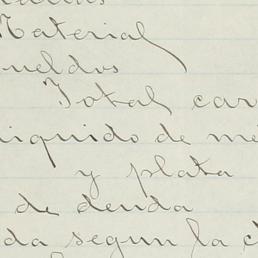 Material
ueldos
Total car
iquido de me
y plata
de deuda
da segun la c